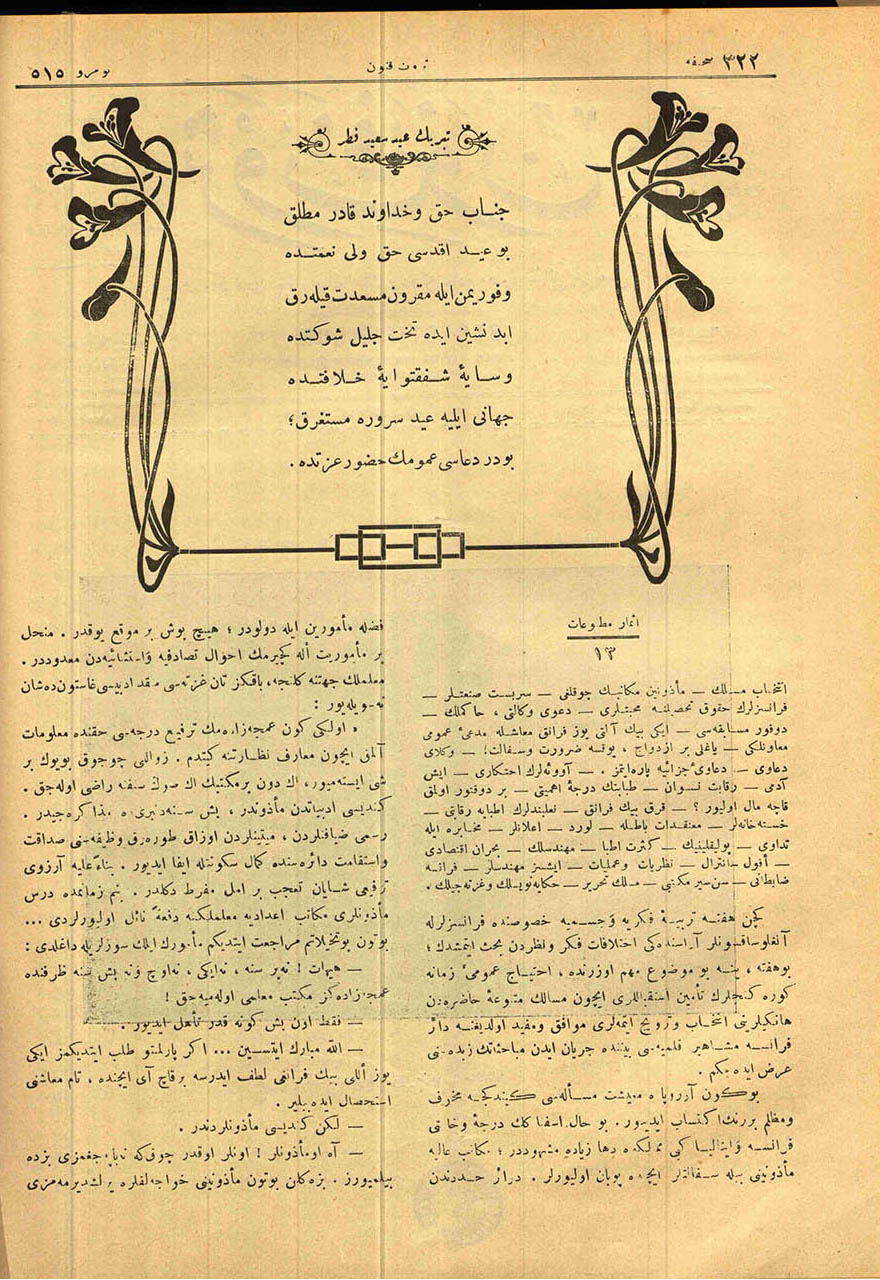 صحیفه ٣٢٢
ثروت فنون
نومرو ٥١٥
تبریك عید سعید فطر
جناب حق و خداوند قادر مطلق
بو عید اقدسی حق ولی نعمتده
وفور یمن ایله مقرون مسعدت قیله رق
ابد نشین ایده تخت جلیل شوكتده
وسایهٔ شفقتوایهٔ خلافتده
جهانی ایلیه عید سروره مستغرق؛
بودر دعاسی عمومك حضور عزتده .
اثمار مطبوعات
١٣
انتخاب مسلك — مأذونین مكاتبك چوقلغی — سربست صنعتلر —
فرانسزلرك حقوق تحصیلنه محبتلری — دعوی وكالتی ، حاكملك —
دوقتور مسابقه‌سی — ایكی بیك آلتی یوز فرانق معاشله مدعیٔ عمومی
معاونلكی — یاغلی بر ازدواج ، یوقسه ضرورت وسفالت! — وكلای
دعاوی — دعاویٔ جزائیه پاره ایتمز . — آووقه‌لرك احتكاری — ایش
آدمی — رقابت نسوان — طبابتك درجهٔ اهمیتی — بر دوقتور اولمق
قاچه مال اولیور ؟ — قرق بیك فرانق — نعلبندلرك اطبایه رقابتی —
خسته‌خانه‌لر — معتقدات باطله — لورد — اعلانلر — مخابره ایله
تداوی — پولیقلینیك — كثرت اطبا — مهندسلك — بحران اقتصادی
— أقول سانترال — نظریات وعملیات — ایشسز مهندسلر — فرانسه
ضابطانی — سن‌سیر مكتبی — مسلك تحریر — حكایه‌نویسلك وغزته‌جیلك .
كچن هفته تربیهٔ فكریه وجسمیه خصوصنده فرانسزلرله
آنغلوساقسونلر آراسنده‌كی اختلافات فكر ونظردن بحث ایتمشدك ؛
بوهفته ، ینه بو موضوع مهم اوزرنده ، احتیاج عمومیٔ زمانه
كوره كنجلرك تأمین استقباللری ایچون مسالك متنوعهٔ حاضره‌دن
هانكیلرینی انتخاب وترویج ایتمه‌لری موافق ومفید اولدیغنه دائر
فرانسه مشاهیر قلمیه‌سی بیننده جریان ایدن مباحثاتك زبده‌سنی
عرض ایده‌جكم .
بوكون آوروپاده معیشت مسأله‌سی كیتدكجه مخوف
ومظلم بررنك اكتساب ایدیور . بو حال اسفناكك درجهٔ وخامتی
فرانسه وایتالیا كبی مملكتده دها زیاده مشهوددر ؛ مكاتب عالیه
مأذونینی بیله سفالتلر ایچنده پویان اولیورلر . دوائر حددندن
فضله مأمورین ایله دولودر ؛ هیچ بوش بر موقع یوقدر . منحل
بر مأموریت أله كچیرمك احوال تصادفیه واستثنائیه‌دن معدوددر .
معلملك جهتنه كلنجه، باقكز تان غزته‌سی منقد ادبیسی غاستون ده‌شان
نه سویله‌یور :
« اولكی كون عمجه‌زاده‌مك ترفیع درجه‌سی حقنده معلومات
آلمق ایچون معارف نظارتنه كیتدم . زواللی چوجوق بویوك بر
شی ایسته‌میور، اك دون برمكتبك اك صوك صنفنه راضی اوله‌جق .
كندیسی ادبیاتدن مأذوندر ، بش سنه‌دنبری‌ده مذاكره‌جیدر .
رسمی ضیافتلردن ، میتینغلردن اوزاق طوره‌رق وظیفه‌سنی صداقت
واستقامت دائره‌سنده كمال سكونتله ایفا ایدیور . بناءً علیه آرزوی
ترفیعی شایان تعجب بر امل مفرط دكلدر . بنم زمانمده درس
مأذونلری مكاتب اعدادیه معلملكنه دفعةً نائل اولیورلردی ...
بوتون بوتخیلاتم مراجعت ایتدیكم مأمورك ایلك سوزلریله داغلدی :
— هیهات ! نه‌بر سنه ، نه‌ایكی ، نه‌اوچ ونه بش سنه ظرفنده
عمجه‌زاده‌كز مكتب معلمی اوله‌میه‌جق !
— فقط اون بش كونه قدر تأهل ایدیور .
— اللّٰه مبارك ایتسین ... اكر پارلمنتو طلب ایتدیكمز ایكی
یوز أللی بیك فرانقی لطف ایدرسه برقاچ آی ایچنده ، تام معاشنی
استحصال ایده‌بیلیر .
— لكن كندیسی مأذونلردندر .
— آه او مأذونلر ! اونلر اوقدر چوق‌كه نه‌یاپه‌جغمزی بزده
بیلمیورز . بزه كلن بوتون مأذونینی خواجه‌لقلره یرلشدیرمه‌مزی